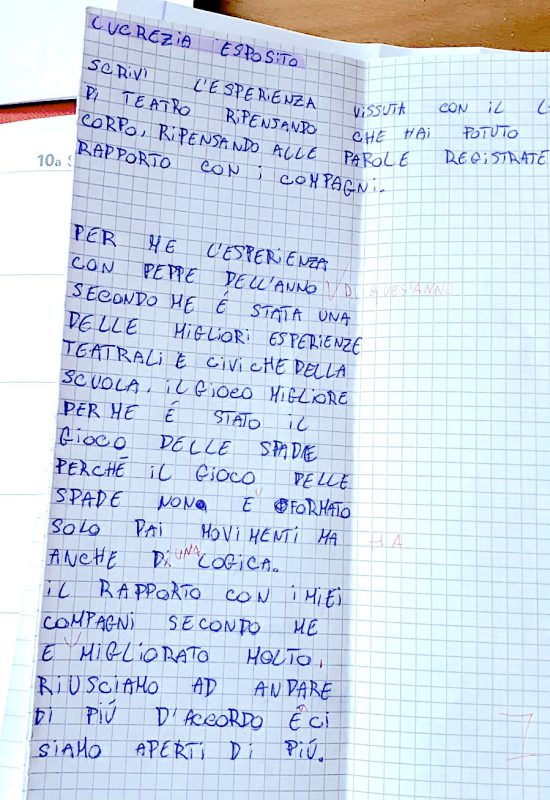 LUCREZIA ESPOSITO
SCRIVI L'ESPERIENZA VISSUTA CON IL
DI TEATRO RIPENSANDO CHE HAI POTUTO
CORPO, RIPENSANDO ALLE PAROLE REGISTRATE
RAPPORTO CON I COMPAGNI.
10a
PER ME L'ESPERIENZA
CON PEPPE DELL'ANNO DI QUEST'ANNO
SECONDO ME É STATA UNA
DELLE MIGLIORI ESPERIENZE
TEATRALI E CIVICHE DELLA
SCUOLA. IL GIOCO MIGLIORE
PER ME É STATO IL
GIOCO DELLE SPADE
PERCHÉ IL GIOCO DELLE
SPADE NON E FORMATO
SOLO DAI MOVIMENTI MA HA
ANCHE DI UNA LOGICA.
IL RAPPORTO CON I MIEI
COMPAGNI SECONDO ME
E MIGLIORATO MOLTO,
RIUSCIAMO AD ANDARE
DI PIÚ D'ACCORDO E CI
SIAMO APERTI DI PIÚ.